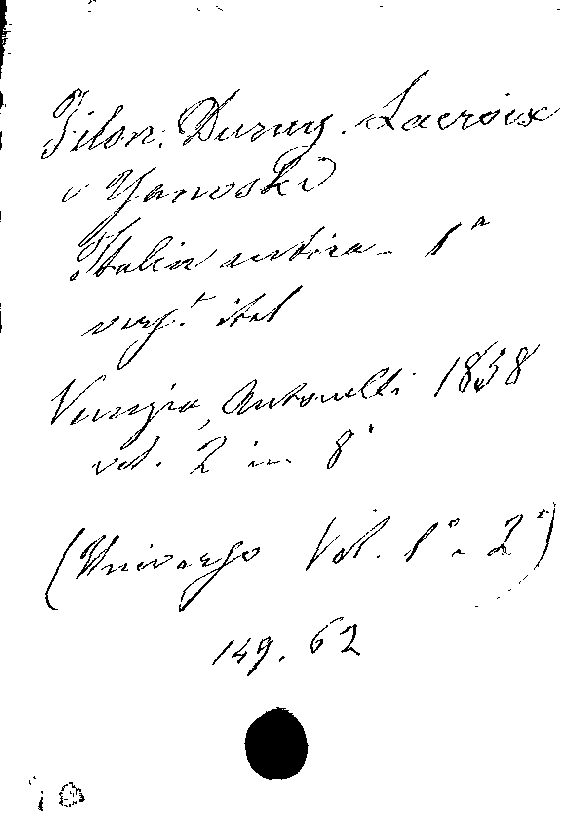 Filon. Duruy. Lacroix
e Yanoski
Italia antica - 1ª
vers.ᵗ ital
Venezia, Antonelli 1858
vol. 2 in 8°
(Universo Vol. 1° e 2°)
149. 62